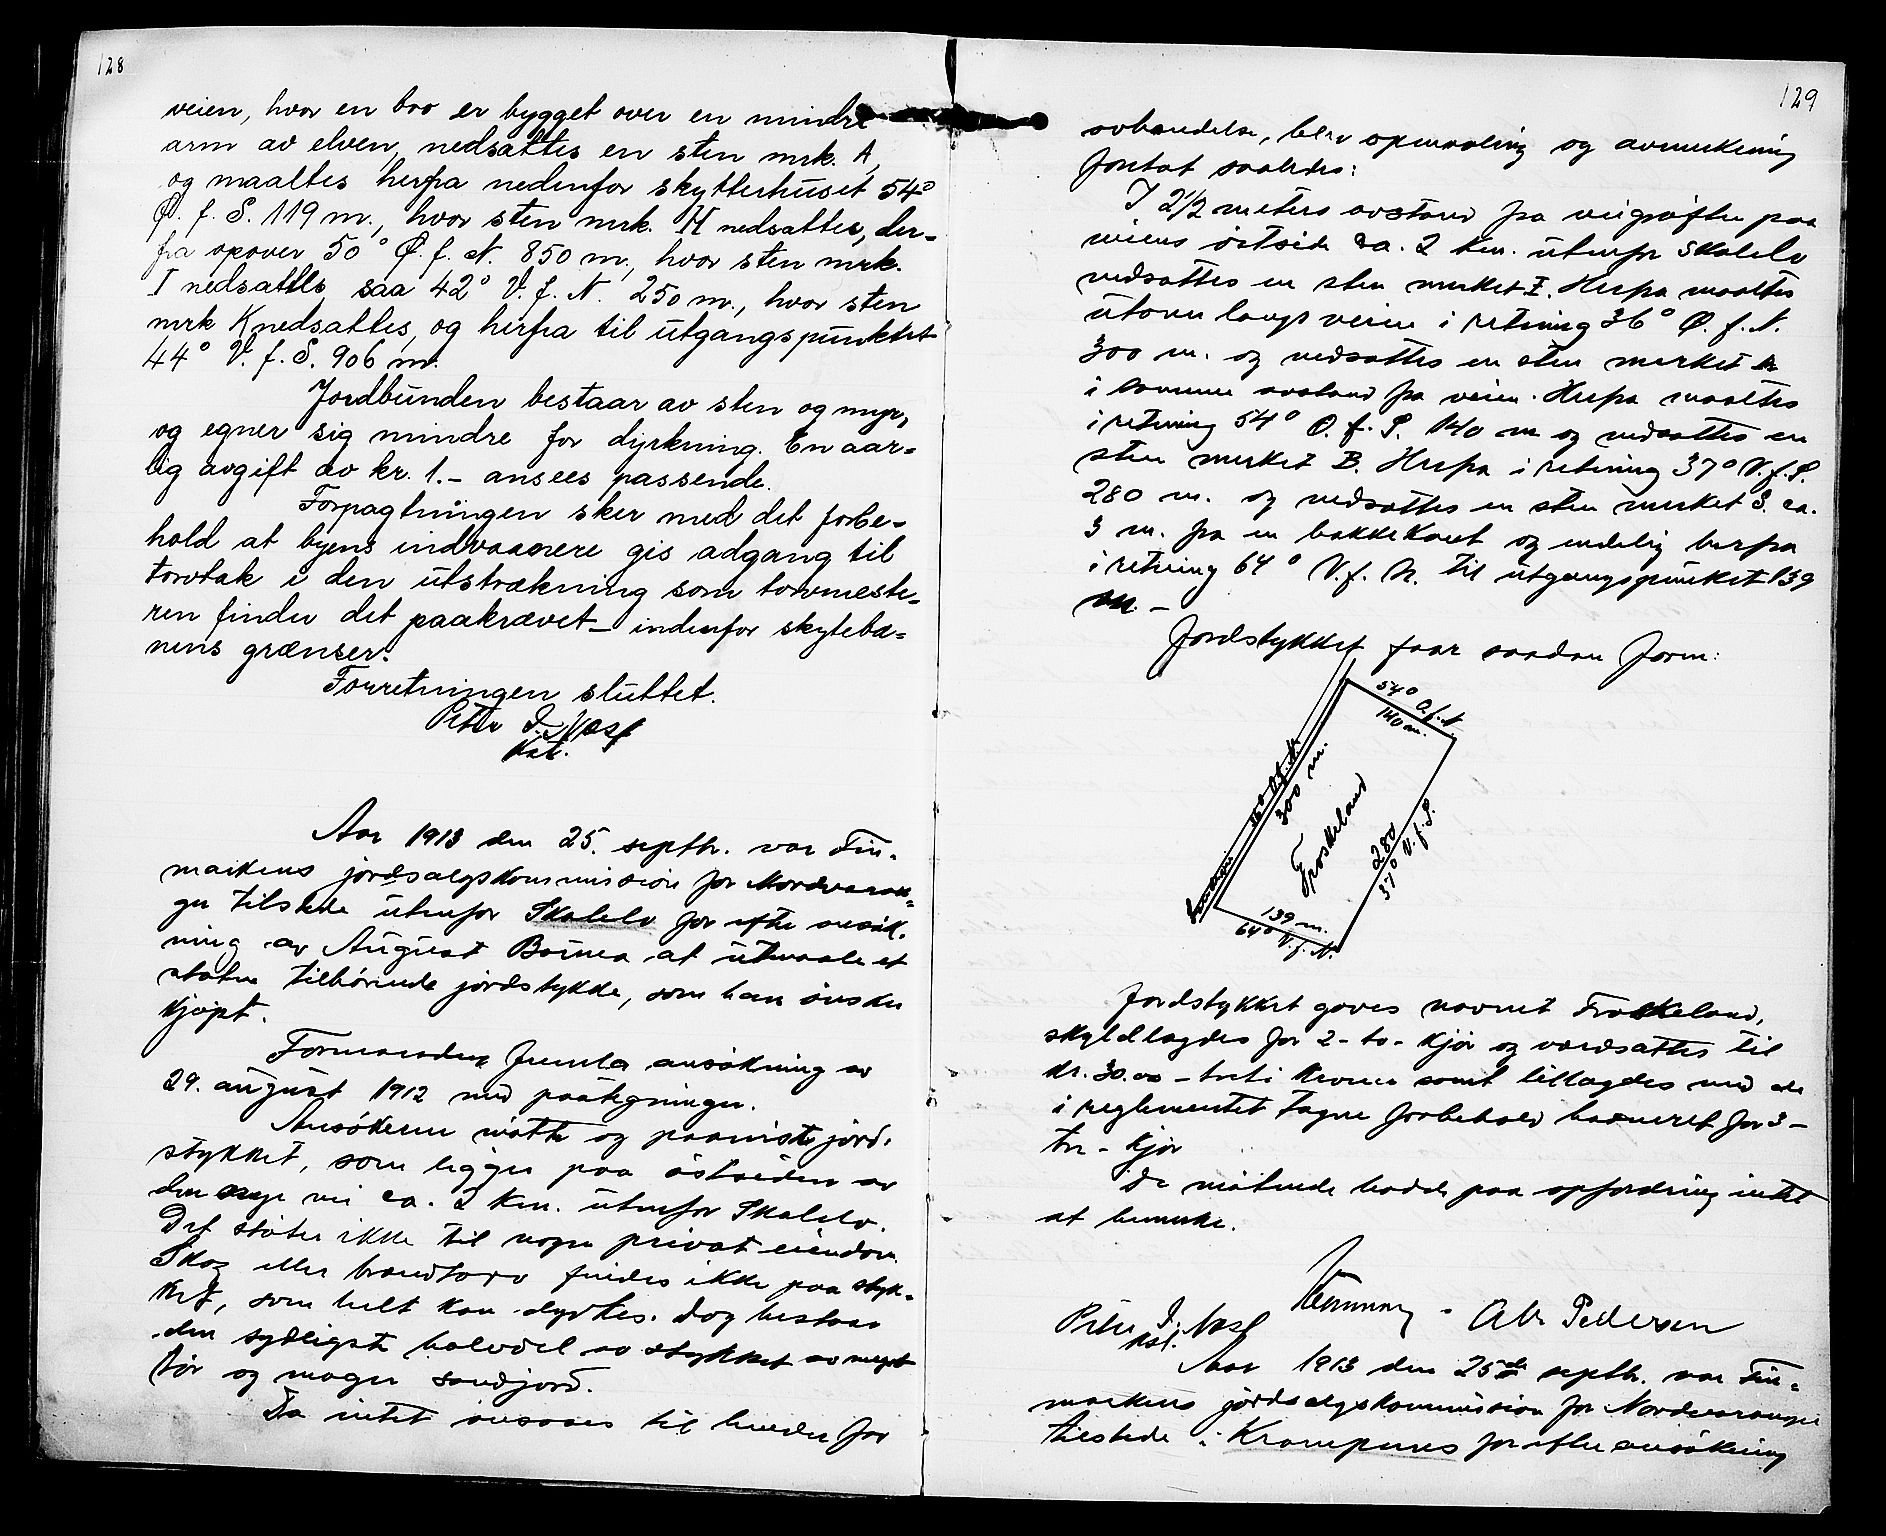 128
veien, hvor en bro er bygget over en mindre
arm av elven, nedsattes en sten mrk. A,
og maaltes herfra nedenfor skytterhuset 54°
Ø. f. S. 119 m., hvor sten mrk. H nedsattes, der-
fra opover 50° Ø. f. N. 850 m., hvor sten mrk.
I nedsattes saa 42° V. f. N. 250 m., hvor sten
mrk K nedsattes, og herfra til utgangspunktet
44° V. f. S. 906 m.
Jordbunden bestaar av sten og myr,
og egner sig mindre for dyrkning. En aar-
lig avgift av kr. 1.- ansees passende.
Forpagtningen sker med det forbe-
hold at byens indvaanere gis adgang til
torvtak i den utstrækning som torvmeste-
ren finder det paakrævet - indenfor skyteba-
nens grænser.
Forretningen sluttet.
Peter I. Nast
Kst.
Aar 1913 den 25. septbr. var Fin-
markens jordsalgskommission for Nordvaran-
ger tilstede utenfor Skalelv for efter ansøk-
ning av August Boinea at utmaale et
staten tilhørende jordstykke, som han ønsker
kjøpt.
Formanden fremla ansøkning av
29. august 1912 med paategninger.
Ansøkeren møtte og paaviste jord-
stykket, som ligger paa østsiden av
den nye vei ca. 2 km. utenfor Skalelv.
Det støter ikke til nogen privat eiendom.
Skog eller brandtorv findes ikke paa styk-
ket, som helt kan dyrkes. Dog bestaar
den sydligste halvdel av stykket av meget
tør og mager sandjord.
Da intet ansaaes til hinder for
129
avhændelse, blev opmaaling og avmerkning
foretat saaledes:
I 2½ meters avstand fra veigrøften paa
veiens østside ca. 2 km. utenfor Skalelv
nedsattes en sten merket I. Herfra maaltes
utover langs veien i retning 36° Ø. f. N.
300 m. og nedsattes en sten merket
i samme avstand fra veien. Herfra maaltes
i retning 54° Ø. f. S. 140 m og nedsattes en
sten merket B. Herfra i retning 37° V. f. S.
280 m. og nedsattes en sten merket S. ca.
3 m. fra en bakkekant og endelig herfra
i retning 64° V. f. N. til utgangspunktet 139
m. -
Jordstykket faar saadan form:
54° Ø. f. N
140 m.
36° Ø. f. N.
300 m.
Froskeland
280
37° V. f. S.
139 m.
64° V. f. N.
Jordstykket gaves navnet Froskeland,
skyldlagdes for 2 - to - kjør og værdsattes til
kr. 30.00 - treti kroner samt tillagdes med de
i reglementet tagne forbehold havneret for 3 -
tre - kjør
De møtende hadde paa opfordring intet
at bemerke.
Peter I. Nast
Kst.
Pedersen
Aar 1913 den 25de septbr. var Fin-
markens jordsalgskommission for Nordvaranger
tilstede i Krampenes for efter ansøkning